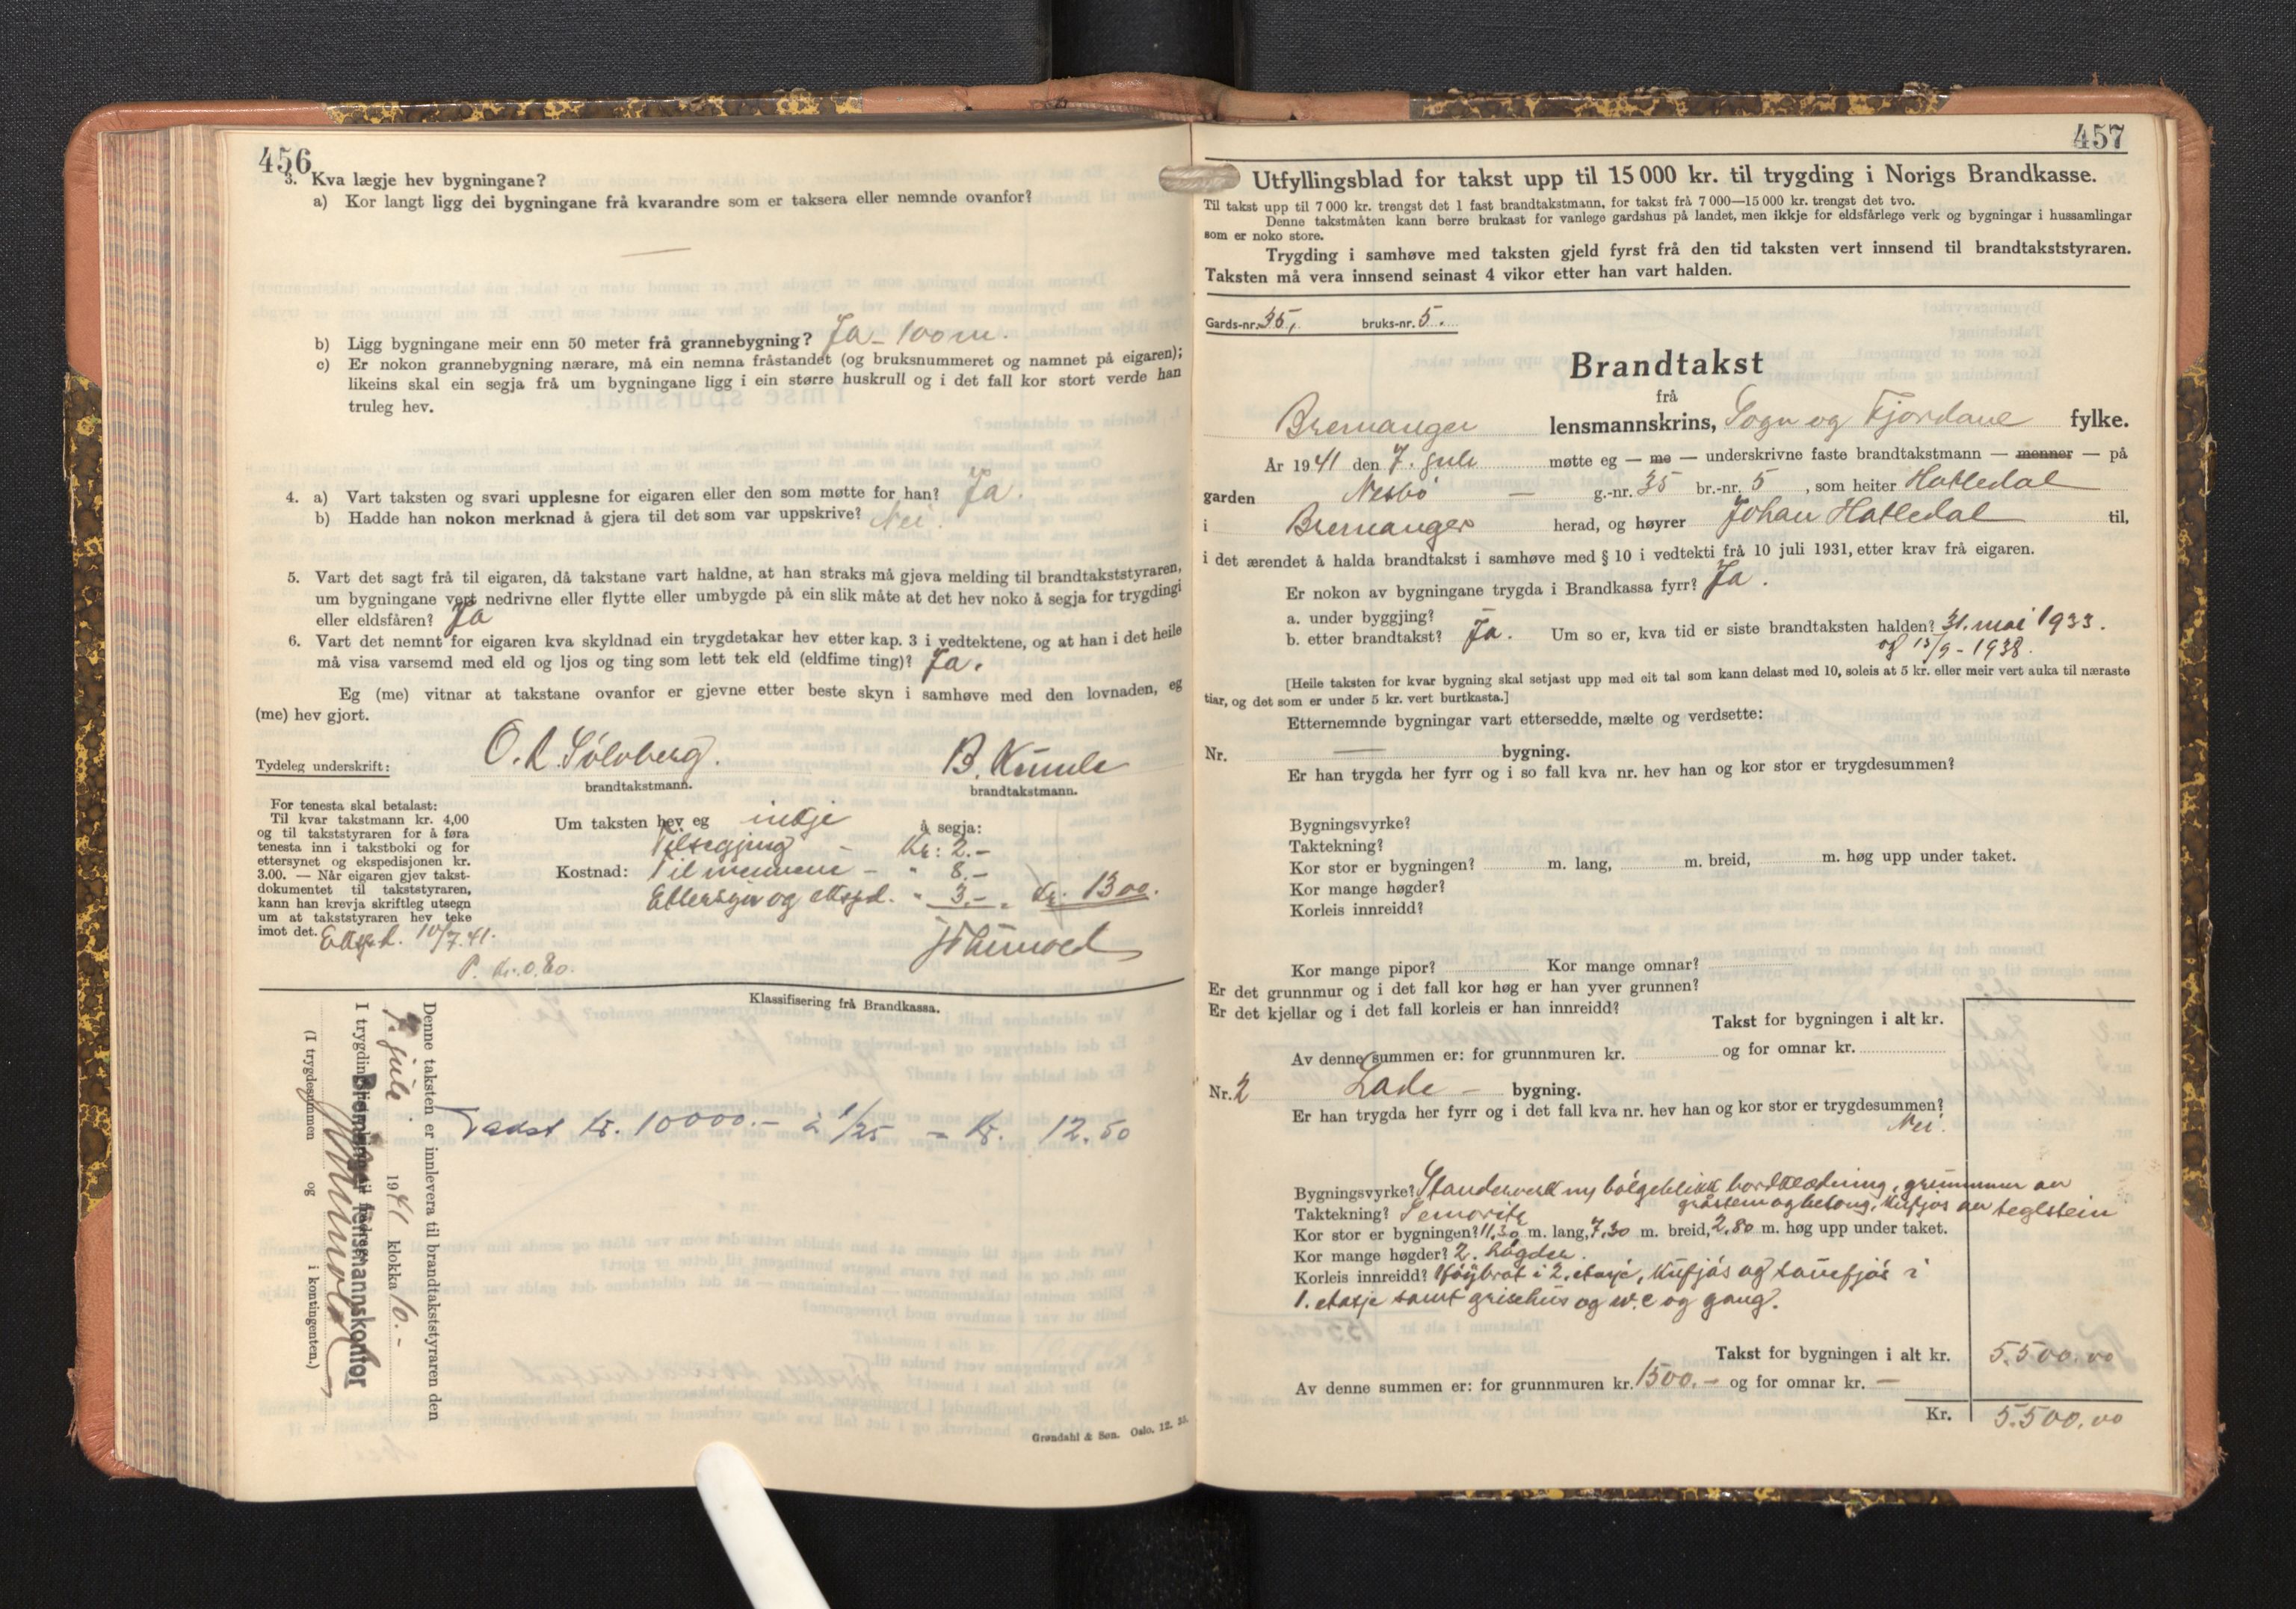 456
3. Kva lægje hev bygningane?
a) Kor langt ligg dei bygningane frå kvarandre som er taksera eller nemnde ovanfor?
—
b) Ligg bygningane meir enn 50 meter frå grannebygning? Ja - 100 m.
c) Er nokon grannebygning nærare, må ein nemna fråstandet (og bruksnummeret og namnet på eigaren);
likeins skal ein segja frå um bygningane ligg i ein større huskrull og i det fall kor stort verde han
truleg hev.
4. a) Vart taksten og svari upplesne for eigaren eller den som møtte for han? Ja.
b) Hadde han nokon merknad å gjera til det som var uppskrive? Nei.
5. Vart det sagt frå til eigaren, då takstane vart haldne, at han straks må gjeva melding til brandtakststyraren,
um bygningane vert nedrivne eller flytte eller umbygde på ein slik måte at det hev noko å segja for trygdingi
eller eldsfåren? Ja
6. Vart det nemnt for eigaren kva skyldnad ein trygdetakar hev etter kap. 3 i vedtektene, og at han i det heile
må visa varsemd med eld og ljos og ting som lett tek eld (eldfime ting)? Ja.
Eg (me) vitnar at takstane ovanfor er gjevne etter beste skyn i samhøve med den lovnaden, eg
(me) hev gjort.
Tydeleg underskrift: O. L. Sölvberg. B. Kumle
brandtakstmann. brandtakstmann.
For tenesta skal betalast:
Til kvar takstmann kr. 4,00
og til takststyraren for å føra
tenesta inn i takstboki og for
ettersynet og ekspedisjonen kr.
3.00. — Når eigaren gjev takst-
dokumentet til takststyraren,
kann han krevja skriftleg utsegn
um at takststyraren hev teke
imot det. Ekspd. 10/7.41.
P. kr. 0.80.
Um taksten hev eg inkje å segja:
Tilsegjing - Kr: 2.-
Kostnad: Til mennene - " 8.-
Ettersyn og ekspd. " 3.- = Kr. 13 00.
Klassifisering frå Brandkassa.
Denne taksten er innlevera til brandtakststyraren den
7. juli 1941 klokka 16.-
Bremanger lensmannskontor
(I trygdesummen og i kontingenten.)
Takst kr. 10000.- à 1/25 = Kr. 12.50
Grøndahl & Søn. Oslo. 12.
457
Utfyllingsblad for takst upp til 15 000 kr. til trygding i Norigs Brandkasse.
Til takst upp til 7 000 kr. trengst det 1 fast brandtakstmann, for takst frå 7 000—15 000 kr. trengst det tvo.
Denne takstmåten kann berre brukast for vanlege gardshus på landet, men ikkje for eldsfårlege verk og bygningar i hussamlingar
som er noko store.
Trygding i samhøve med taksten gjeld fyrst frå den tid taksten vert innsend til brandtakststyraren.
Taksten må vera innsend seinast 4 vikor etter han vart halden.
Gards-nr. 35, bruks-nr. 5.
Brandtakst
frå
Bremanger lensmannskrins, Sogn og Fjordane fylke.
År 1941 den 7. juli møtte eg — me — underskrivne faste brandtakstmann — menner — på
garden Nesbö — g.-nr. 35 br.-nr. 5, som heiter Hatledal
i Bremanger herad, og høyrer Johan Hatledal til,
i det ærendet å halda brandtakst i samhøve med § 10 i vedtekti frå 10 juli 1931, etter krav frå eigaren.
Er nokon av bygningane trygda i Brandkassa fyrr? Ja.
a. under byggjing?
b. etter brandtakst? Ja. Um so er, kva tid er siste brandtaksten halden? 31. mai 1933.
og 15/9 - 1938.
[Heile taksten for kvar bygning skal setjast upp med eit tal som kann delast med 10, soleis at 5 kr. eller meir vert auka til næraste
tiar, og det som er under 5 kr. vert burtkasta.]
Etternemnde bygningar vart ettersedde, mælte og verdsette:
Nr. — bygning.
Er han trygda her fyrr og i so fall kva nr. hev han og kor stor er trygdesummen?
Bygningsvyrke?
Taktekning?
Kor stor er bygningen? m. lang, m. breid, m. høg upp under taket.
Kor mange høgder?
Korleis innreidd?
Kor mange pipor? Kor mange omnar?
Er det grunnmur og i det fall kor høg er han yver grunnen?
Er det kjellar og i det fall korleis er han innreidd?
Takst for bygningen i alt kr.
Av denne summen er: for grunnmuren kr. og for omnar kr.
Nr. 2 Lade - bygning.
Er han trygda her fyrr og i det fall kva nr. hev han og kor stor er trygdesummen?
Nei.
Bygningsvyrke? Standerverk ny bölgeblikk bordklædning, grunnmur av
gråstein og betong, Kufjös av teglstein
Taktekning?
Kor stor er bygningen? 11,30 m. lang, 7,30 m. breid, 2,80 m. høg upp under taket.
Kor mange høgder? 2. högder.
Korleis innreidd? Höybrot i 2. etasje, Kufjös og sauefjös i
1. etasje samt grisehus og w.c og gang.
Takst for bygningen i alt kr. 5.500.00
Av denne summen er: for grunnmuren kr. 1500.- og for omnar kr. —
Kr. 5.500.00